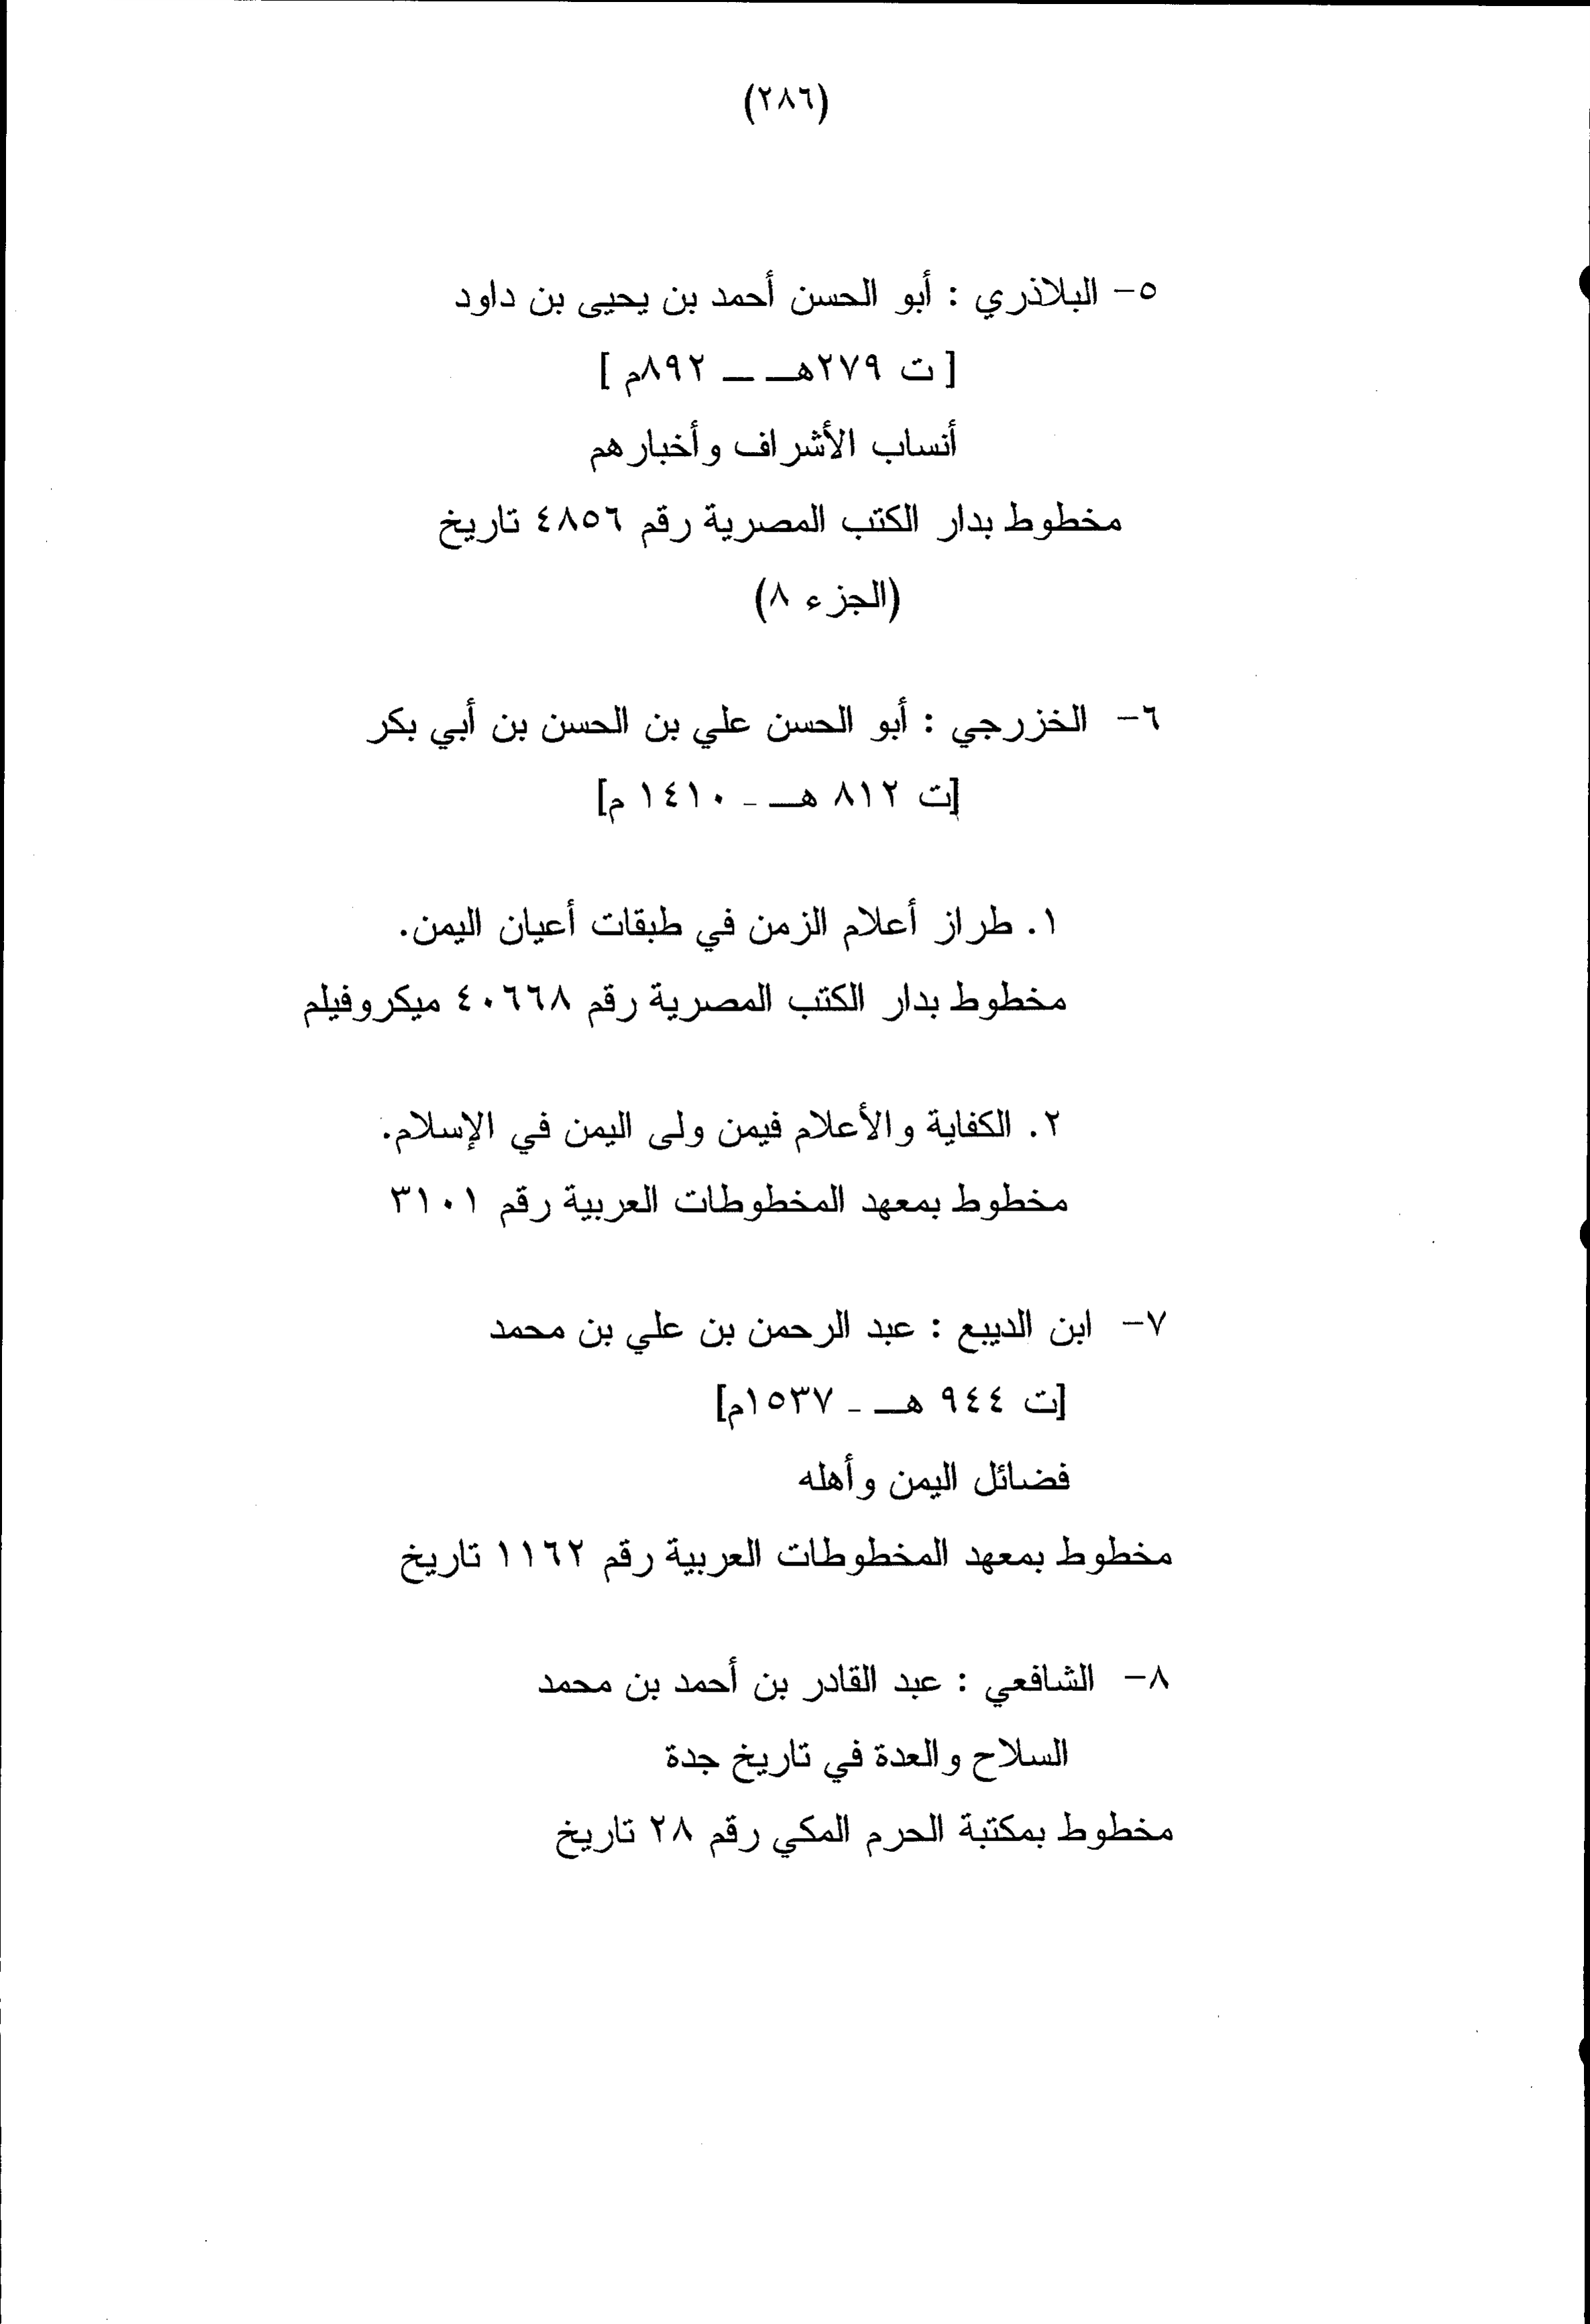 (٢٨٦)
٥- البلاذري : أبو الحسن أحمد بن يحيى بن داود
[ ت ٢٧٩هـ ـ ٨٩٢م ]
أنساب الأشراف وأخبارهم
مخطوط بدار الكتب المصرية رقم ٤٨٥٦ تاريخ
(الجزء ٨)
٦- الخزرجي : أبو الحسن علي بن الحسن بن أبي بكر
[ت ٨١٢ هـ - ١٤١٠ م]
١. طراز أعلام الزمن في طبقات أعيان اليمن.
مخطوط بدار الكتب المصرية رقم ٤٠٦٦٨ ميكروفيلم
٢. الكفاية والأعلام فيمن ولى اليمن في الإسلام.
مخطوط بمعهد المخطوطات العربية رقم ٣١٠١
٧- ابن الديبع : عبد الرحمن بن علي بن محمد
[ت ٩٤٤ هـ - ١٥٣٧م]
فضائل اليمن وأهله
مخطوط بمعهد المخطوطات العربية رقم ١١٦٢ تاريخ
٨- الشافعي : عبد القادر بن أحمد بن محمد
السلاح والعدة في تاريخ جدة
مخطوط بمكتبة الحرم المكي رقم ٢٨ تاريخ